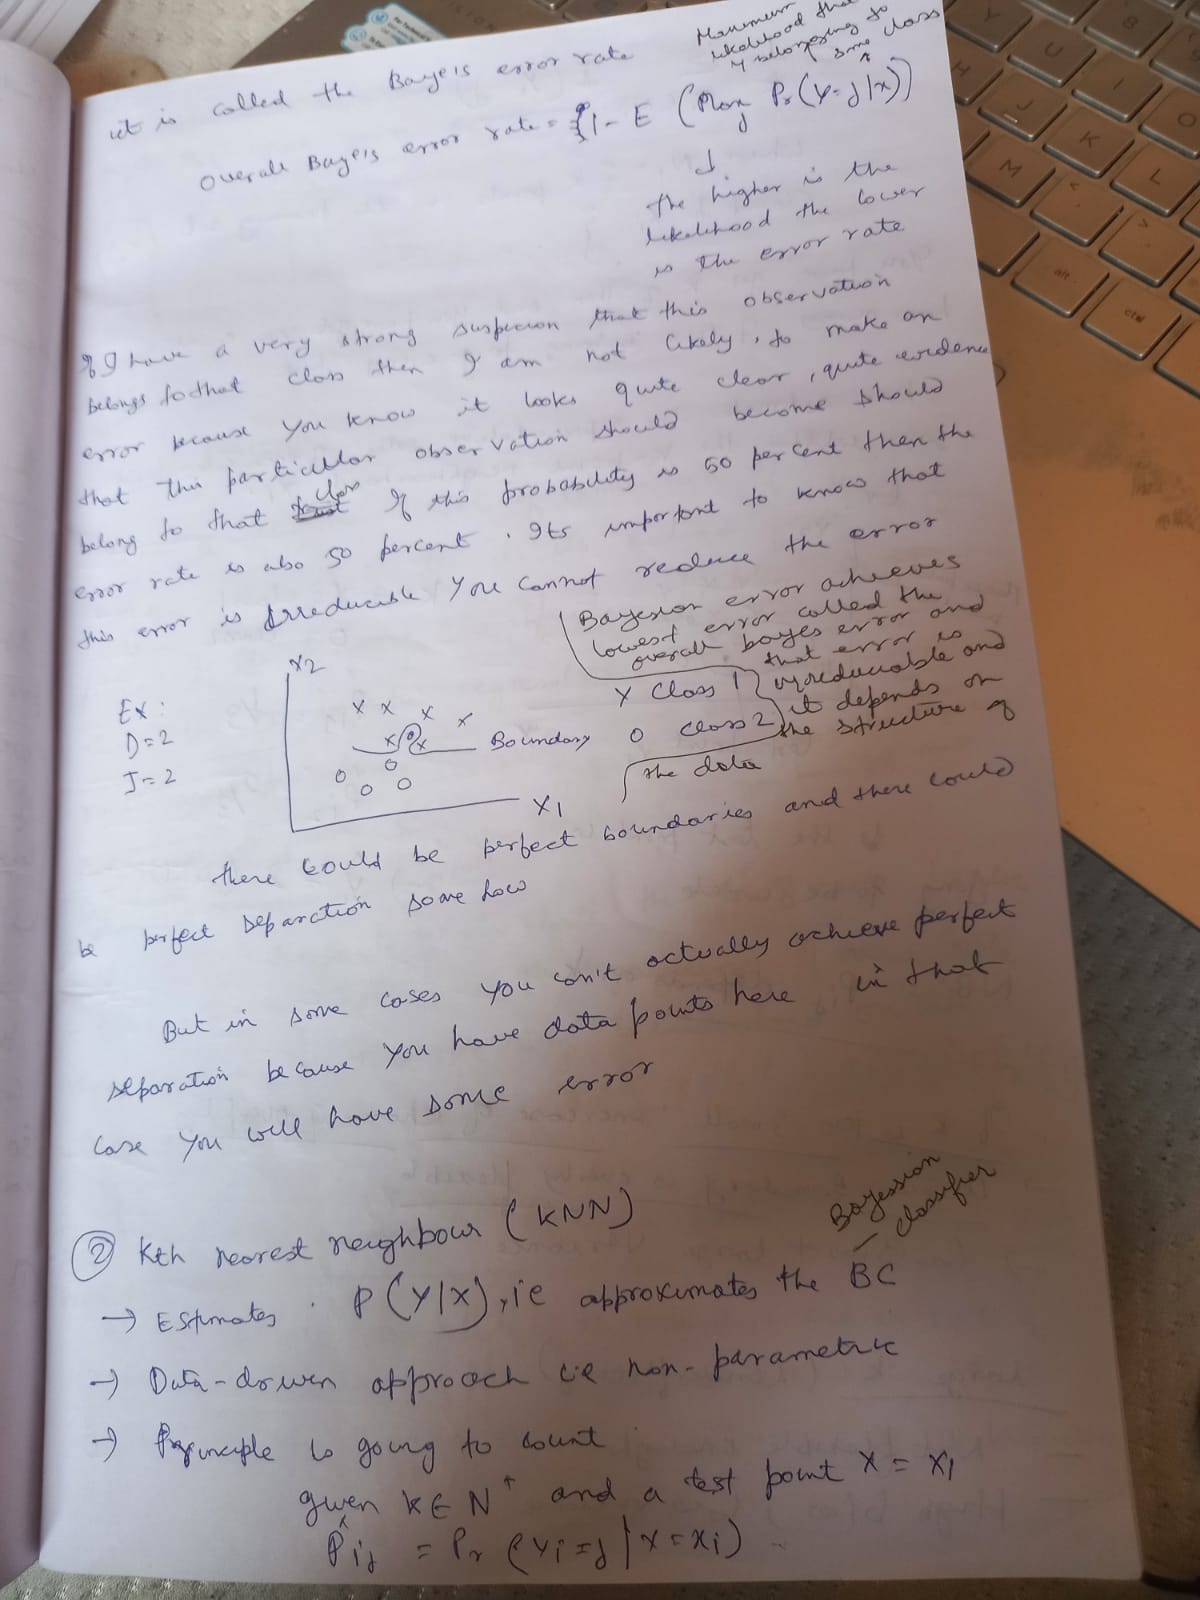 Maximum
likelihood that
Y belonging to
same class
it is called the Baye's error rate
Overall Baye's error rate = 1 - E (Max Pr(Y=j|x))
j
↓
the higher is the
likelihood the lower
is the error rate
If I have a very strong suspecion that this observation
belongs to that class then I am not likely, to make an
error because you know it looks quite clear, quite evidence
that this particular observation should become should
belong to that class If this probability is 50 per cent then the
error rate is also 50 percent. Its important to know that
this error is Irreducible You cannot reduce the error
Bayesion error achieves
lowest error called the
overall bayes error and
that error is
irreducable and
it depends on
the structure of
the data
Ex:
D=2
J=2
X2
X1
Boundary
X Class 1
O Class 2
there could be perfect boundaries and there could
be perfect separaction some how
But in some cases you can't actually achieve perfect
separation because you have data points here in that
case you will have some error
② Kth nearest neighbour (KNN)
Bayession
classifier
→ Estimates P(Y|X), ie approximates the BC
→ Data-drowen approach i.e non-parametric
→ Principle is going to count
given K ∈ N⁺ and a test point X = X1
P̂ij = Pr (Yi=j | X=xi)